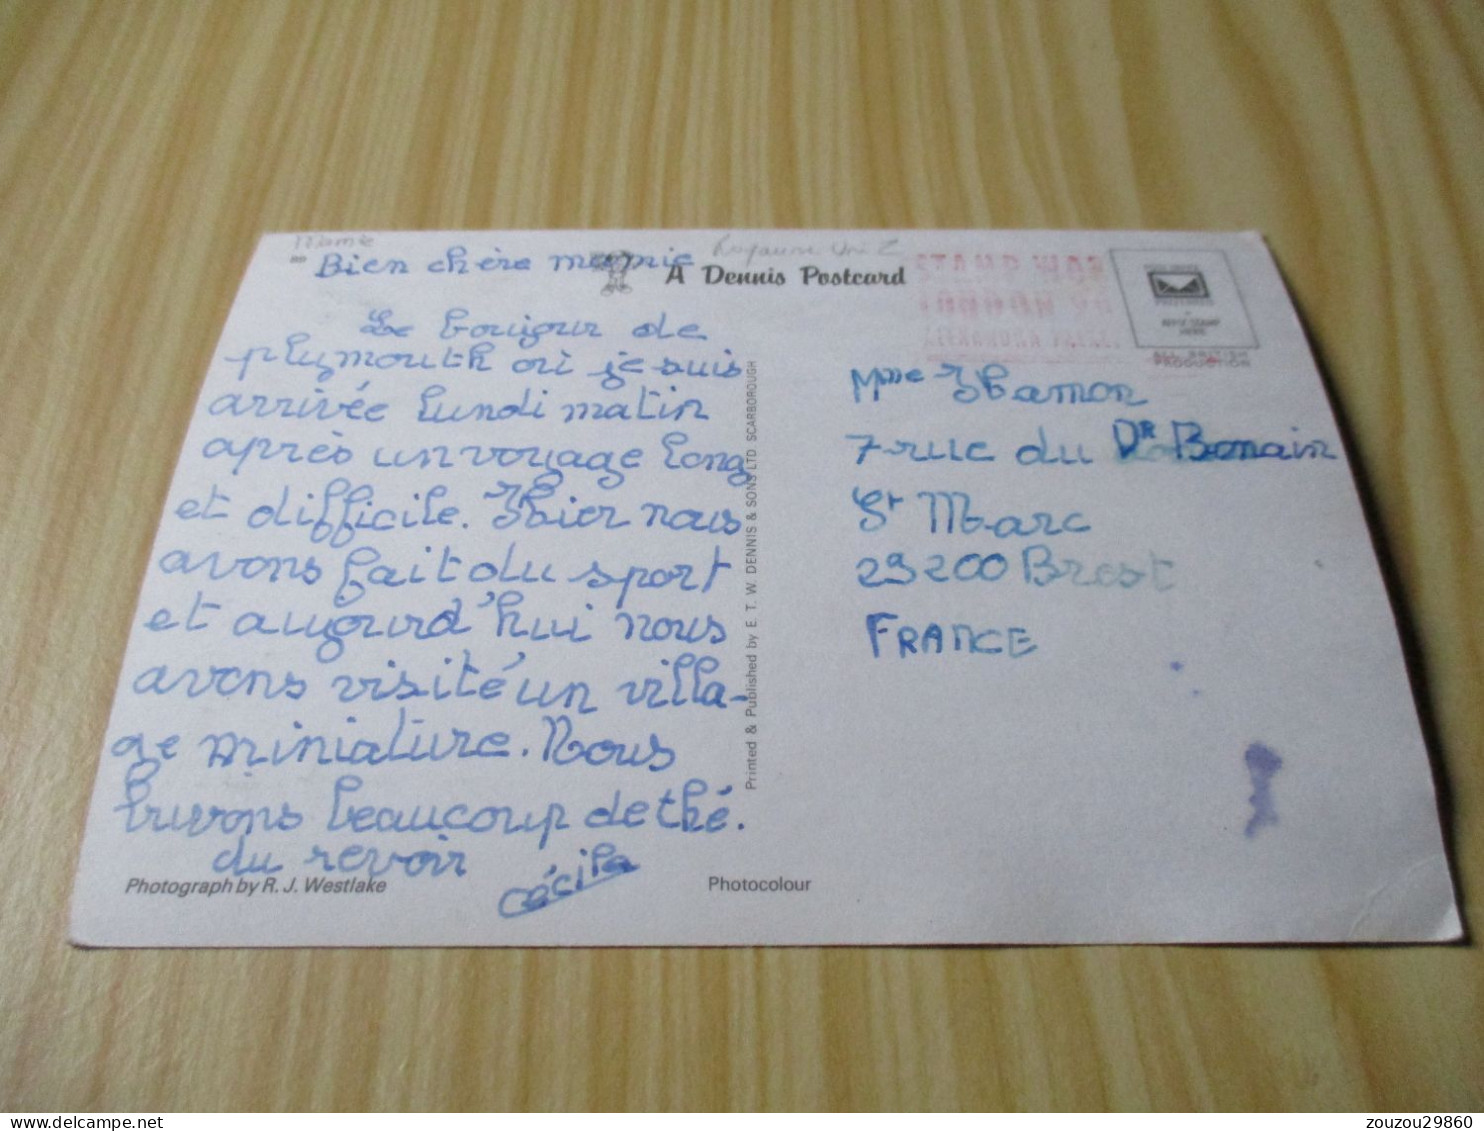 Mamie
Royaume Uni 2
BD
Bien chère mamie
A Dennis Postcard
STAMP WAS
PRODUCTION
Le bonjour de
plymouth où je suis
arrivée lundi matin
après un voyage long
et difficile. Hier nous
avons fait du sport
et aujourd'hui nous
avons visité un villa-
ge miniature. Nous
buvons beaucoup de thé.
du revoir
Cécile
Photograph by R. J. Westlake
Photocolour
Printed & Published by E. T. W. DENNIS & SONS LTD SCARBOROUGH
Mme Hamon
7 rue du Dr Bonain
St Marc
29200 Brest
FRANCE
zouzou29860